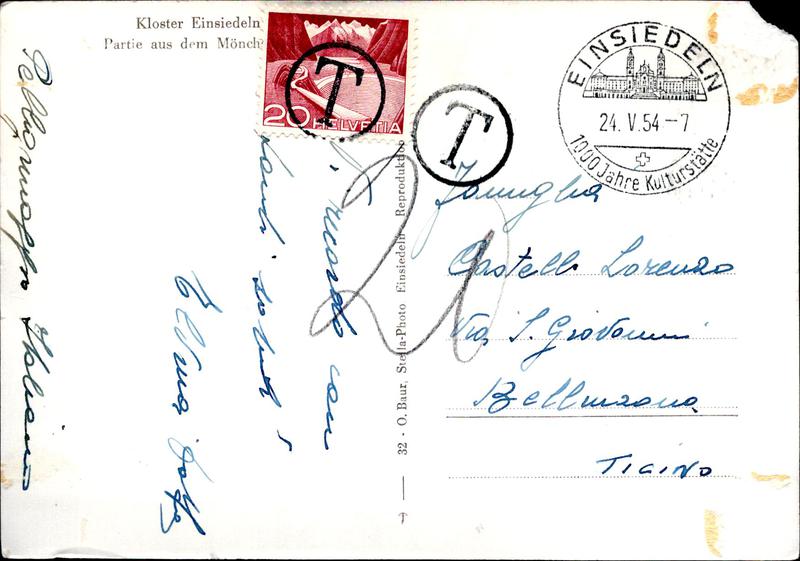 Kloster Einsiedeln
Partie aus dem Mönch
20 HELVETIA
T
T
EINSIEDELN
24. V. 54 - 7
1000 Jahre Kulturstätte
20
Vi ricordo con
tanti saluti!
32 - O. Baur, Stella-Photo Einsiedeln Reproduktion
Famiglia
Castelli Lorenzo
Via S. Giovanni
Bellinzona
Ticino